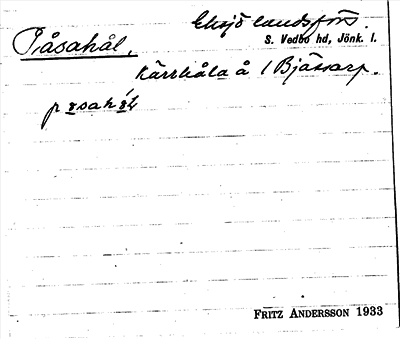 Eksjö landsförs.
Påsahål, S. Vedbo hd, Jönk. l.
Kärrhåla å 1 Bjässarp.
FRITZ ANDERSSON 1933